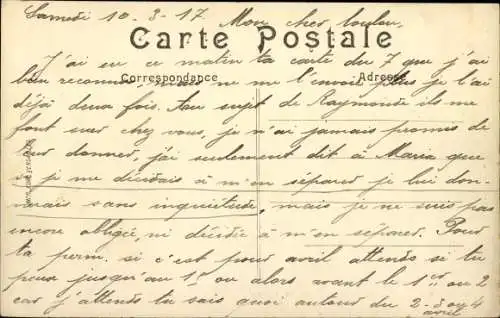 Samedi 10-3-17. Mon cher loulou,
Carte Postale
J'ai eu ce matin ta carte du 7 que j'ai
bien reconnue, mais ne me l'envoie plus je l'ai
Correspondance Adresse
déjà deux fois. Au sujet de Raymonde ils me
font suer chez vous, je n'ai jamais promis de
leur donner, j'ai seulement dit à Maria que
si je me décidais à m'en séparer je lui don-
nerais sans inquiétude, mais je ne suis pas
encore obligée, ni décidée à m'en séparer. Pour
ta perm. si c'est pour avril attends si tu
peux jusqu'au 1er ou alors avant le 1er ou 2
car j'attends tu sais quoi autour du 2-3 ou 4
avril